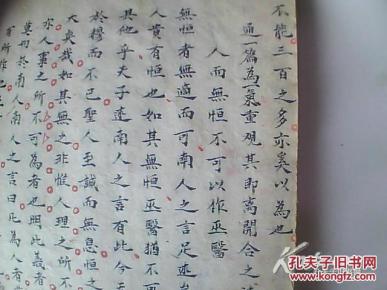 不能三百之多亦奚以為也
通一篇為氣重观其即離開合之
人而無恒不可以作巫醫
無恒者無適而可南人之言足述
人貴有恒也如其無恒巫醫猶不
具他乎夫子述南人之言有此今
於穆而不已聖人至誠而無息恒之
大矣哉如其無之非惟人理之所不
亦人事之所不可為者也明此義者
莫切於南人南人之言曰此為人者